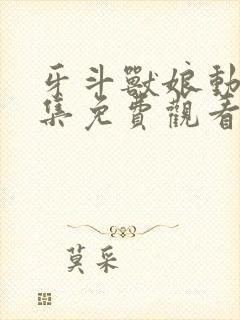 牙斗獸娘動
集免費觀看
莫采